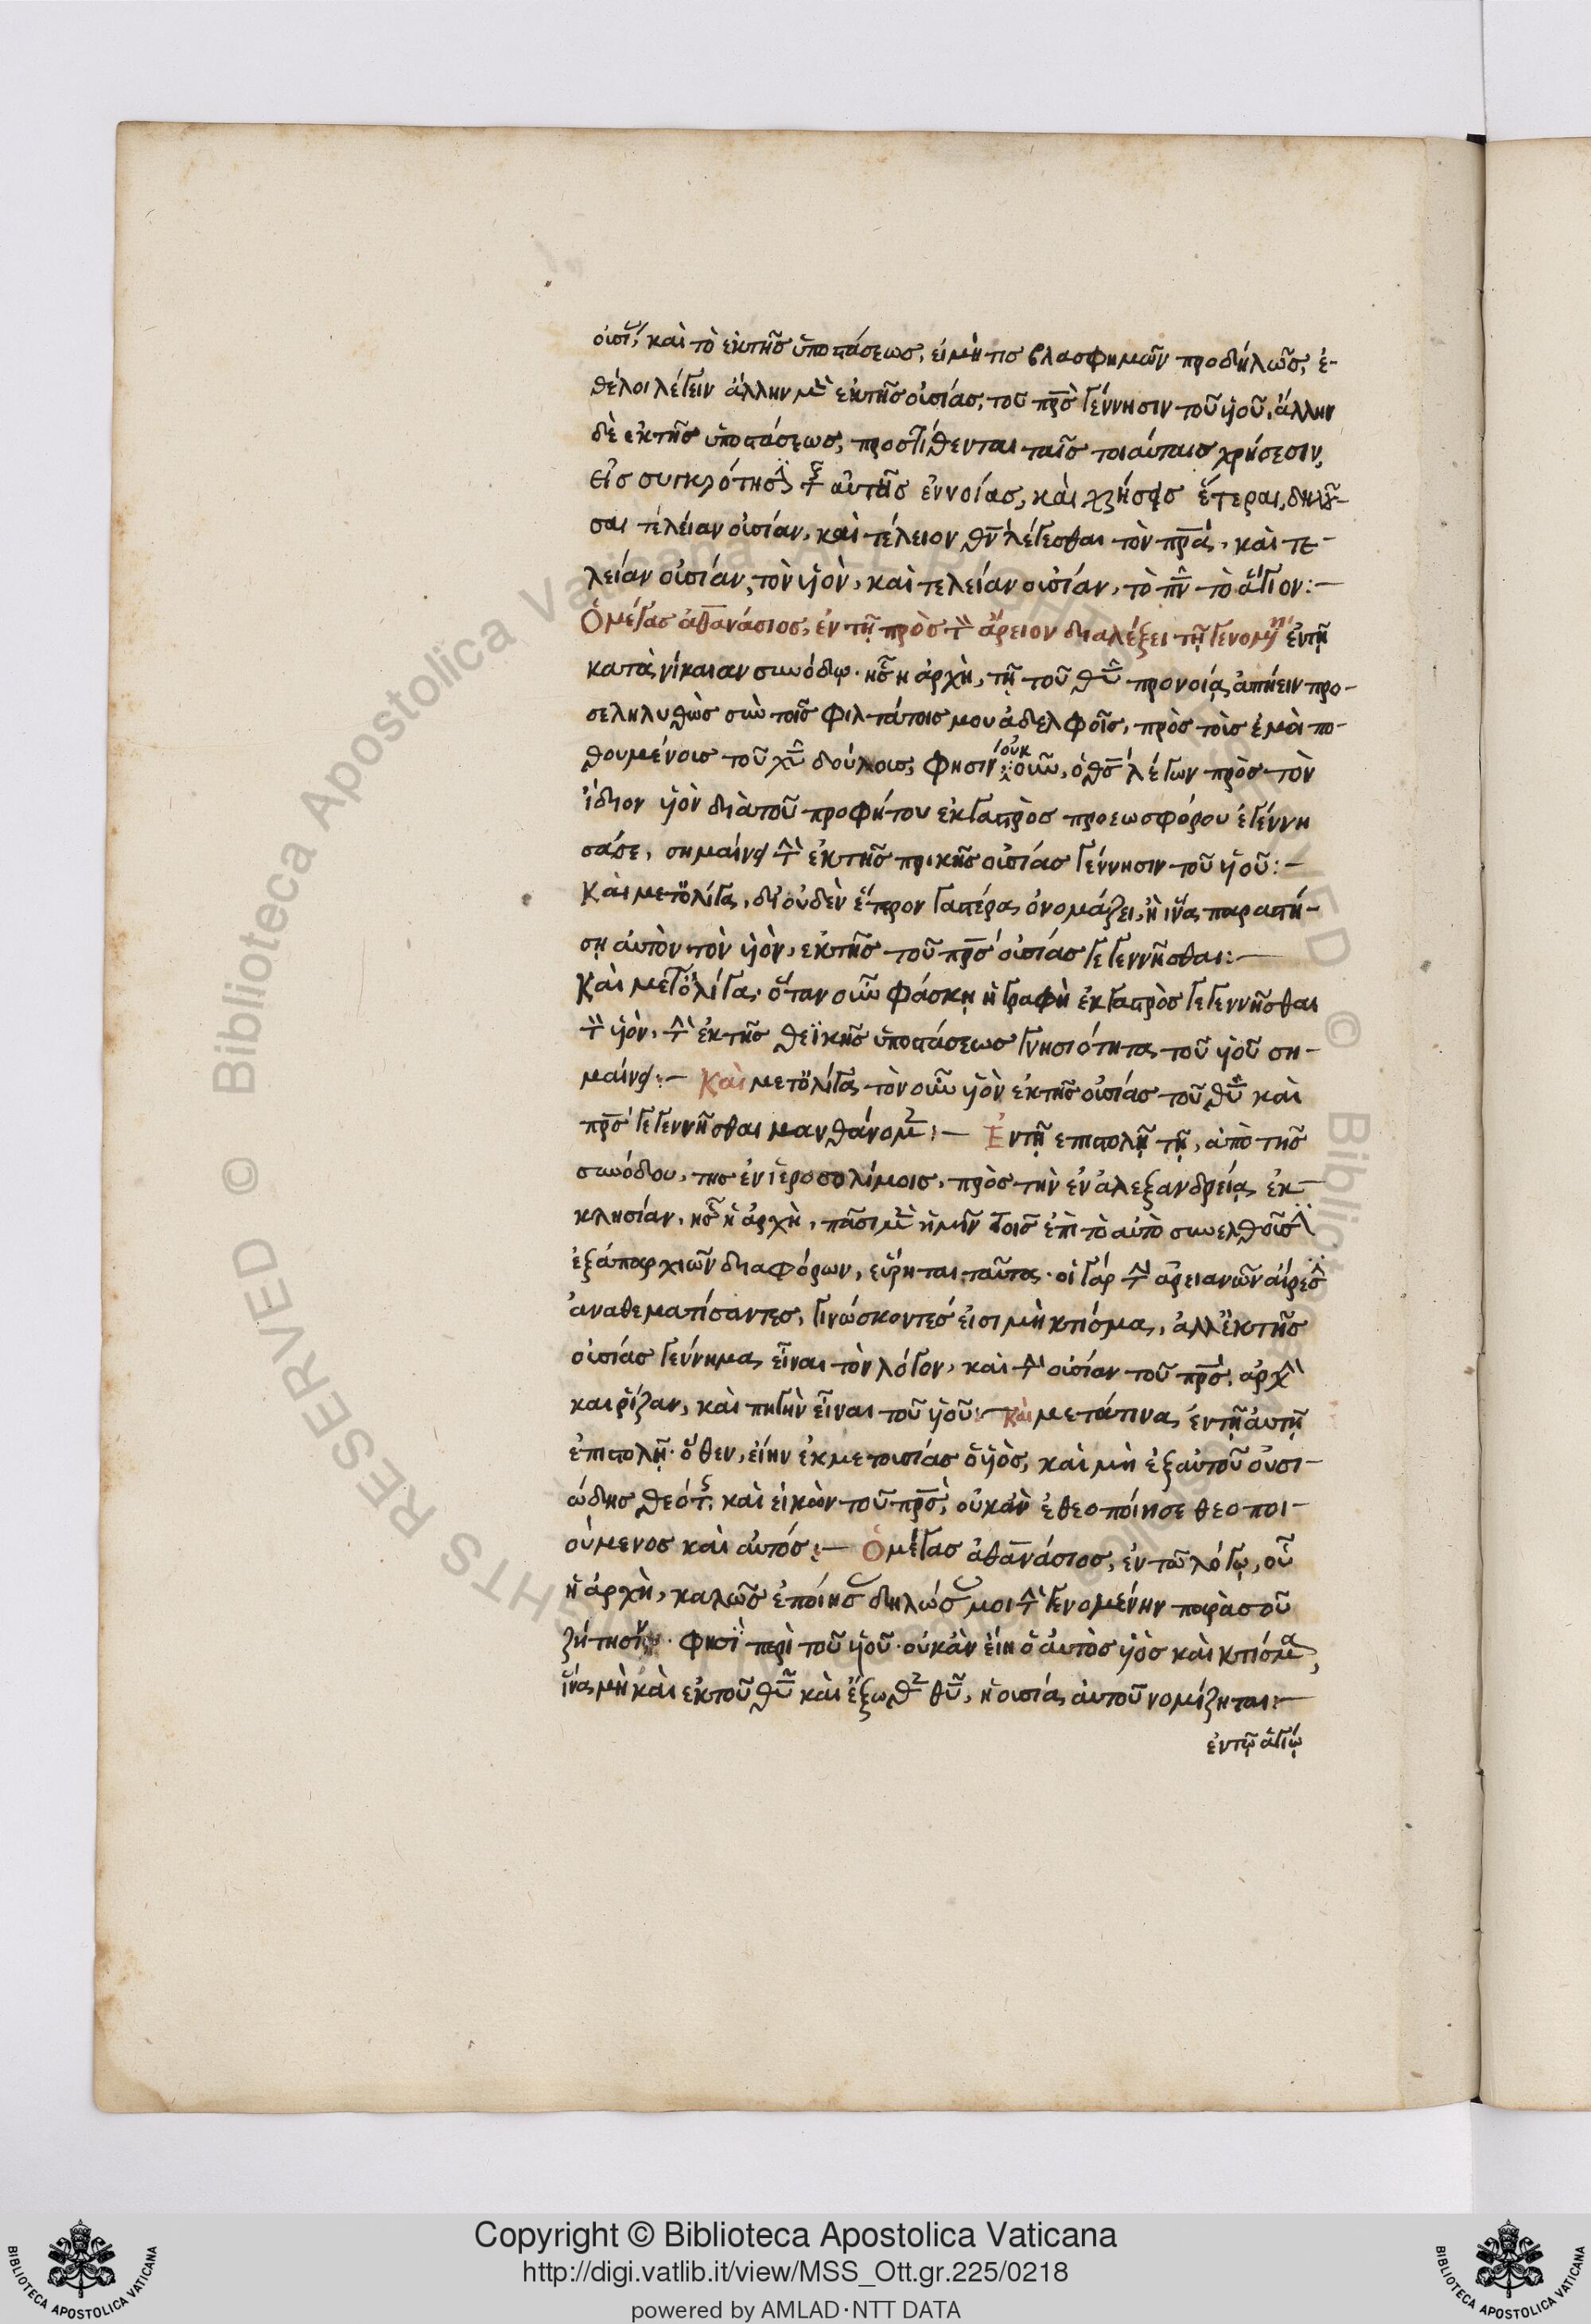 καὶ τὸ ἐκ τῆς ὑποστάσεως, εἰ μή τις βλασφημῶν προδήλως, ἐ-
θέλοι λέγειν ἄλλην μὲν ἐκ τῆς οὐσίας, τοῦ πρ̅ς γέννησιν τοῦ υἱοῦ, ἄλλην
δὲ ἐκ τῆς ὑποστάσεως, προστίθενται ταῖς τοιαύταις χρήσεσιν,
εἰς συγκρότησιν τῆς αὐτῆς ἐννοίας, καὶ χρήσεις ἕτεραι, δηλοῦ-
σαι τελείαν οὐσίαν, καὶ τέλειον θν̅ λέγεσθαι τὸν πρ̅α, καὶ τε-
λείαν οὐσίαν, τὸν υἱὸν, καὶ τελείαν οὐσίαν, τὸ πν̅ τὸ ἅγιον:—
Ὁ μέγας ἀθανάσιος, ἐν τῇ πρὸς τὸν ἄρειον διαλέξει τῇ γενομένῃ ἐν τῇ
κατὰ νίκαιαν συνόδῳ· ἧς ἡ ἀρχὴ, τῇ τοῦ θυ̅ προνοίᾳ ἀπῄειν προ-
σεληλυθὼς σὺν τοῖς φιλτάτοις μου ἀδελφοῖς, πρὸς τοῖς ἐμὰ πο-
θουμένοις τοῦ χυ̅ δούλοις, φησίν· οὐκοῦν, ὁ θς̅ λέγων πρὸς τὸν
ἴδιον υἱὸν διὰ τοῦ προφήτου ἐκ γαστρὸς πρὸ ἑωσφόρου ἐγέννη
σά σε, σημαίνει τὴν ἐκ τῆς πρικῆς οὐσίας γέννησιν τοῦ υἱοῦ:—
Καὶ μετ' ὀλίγα, δι' οὐδὲν ἕτερον γαστέρα ὀνομάζει, ἢ ἵνα παραστή-
σῃ αὐτὸν τὸν υἱὸν, ἐκ τῆς τοῦ πρ̅ς οὐσίας γεγεννῆσθαι:—
Καὶ μετ' ὀλίγα. ὅταν οὖν φάσκῃ ἡ γραφὴ ἐκ γαστρὸς γεγεννῆσθαι
τὸν υἱὸν, τὴν ἐκ τῆς θεϊκῆς ὑποστάσεως γνησιότητα τοῦ υἱοῦ ση-
μαίνει:— Καὶ μετ' ὀλίγα τὸν οὖν υἱὸν ἐκ τῆς οὐσίας τοῦ θυ̅ καὶ
πρ̅ς γεγεννῆσθαι μανθάνομεν:— Ἐν τῇ ἐπιστολῇ τῇ, ἀπὸ τῆς
συνόδου, της ἐν ἱεροσολύμοις, πρὸς τὴν ἐν ἀλεξανδρείᾳ ἐκ-
κλησίαν, ἧς ἡ ἀρχὴ, πᾶσι μὲν ἡμῖν τοῖς ἐπὶ τὸ αὐτὸ συνελθοῦσιν
ἐξ ἐπαρχιῶν διαφόρων, εἴρηται ταῦτα· οἱ γὰρ τὴν ἀρειανῶν αἵρεσιν
ἀναθεματίσαντες, γινώσκοντές εἰσι μὴ κτίσμα, ἀλλ' ἐκ τῆς
οὐσίας γέννημα εἶναι τὸν λόγον, καὶ τὴν οὐσίαν τοῦ πρ̅ς, ἀρχὴν
καὶ ῥίζαν, καὶ πηγὴν εἶναι τοῦ υἱοῦ:— Καὶ μετά τινα, ἐν τῇ αὐτῇ
ἐπιστολῇ· ὅθεν, εἰ ἦν ἐκ μετουσίας ὁ υἱὸς, καὶ μὴ ἐξ αὐτοῦ οὐσι-
ώδης θεότης καὶ εἰκὼν τοῦ πρ̅ς, οὐκ ἂν ἐθεοποίησε θεοποι-
ούμενος καὶ αὐτός:— Ὁ μέγας ἀθανάσιος, ἐν τῷ λόγῳ, οὗ
ἡ ἀρχὴ, καλῶς ἐποίησας δηλώσας μοι τὴν γενομένην παρὰ σοῦ
ζήτησιν· φησὶ περὶ τοῦ υἱοῦ· οὐκ ἂν εἴη ὁ αὐτὸς υἱὸς καὶ κτίσμα,
ἵνα μὴ καὶ ἐκ τοῦ θυ̅ καὶ ἔξωθεν θυ̅, ἡ οὐσία αὐτοῦ νομίζηται:—
ἐν τῷ ἁγίῳ
Copyright © Biblioteca Apostolica Vaticana
http://digi.vatlib.it/view/MSS_Ott.gr.225/0218
powered by AMLAD·NTT DATA